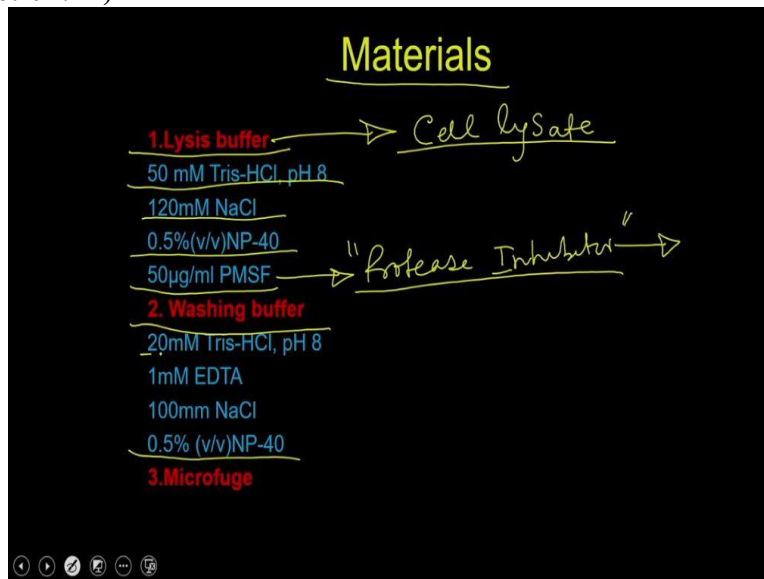 Materials
1.Lysis buffer Cell lysate
50 mM Tris-HCl, pH 8
120mM NaCl
0.5%(v/v)NP-40
50µg/ml PMSF "Protease Inhibitor"
2. Washing buffer
20mM Tris-HCl, pH 8
1mM EDTA
100mm NaCl
0.5% (v/v)NP-40
3.Microfuge